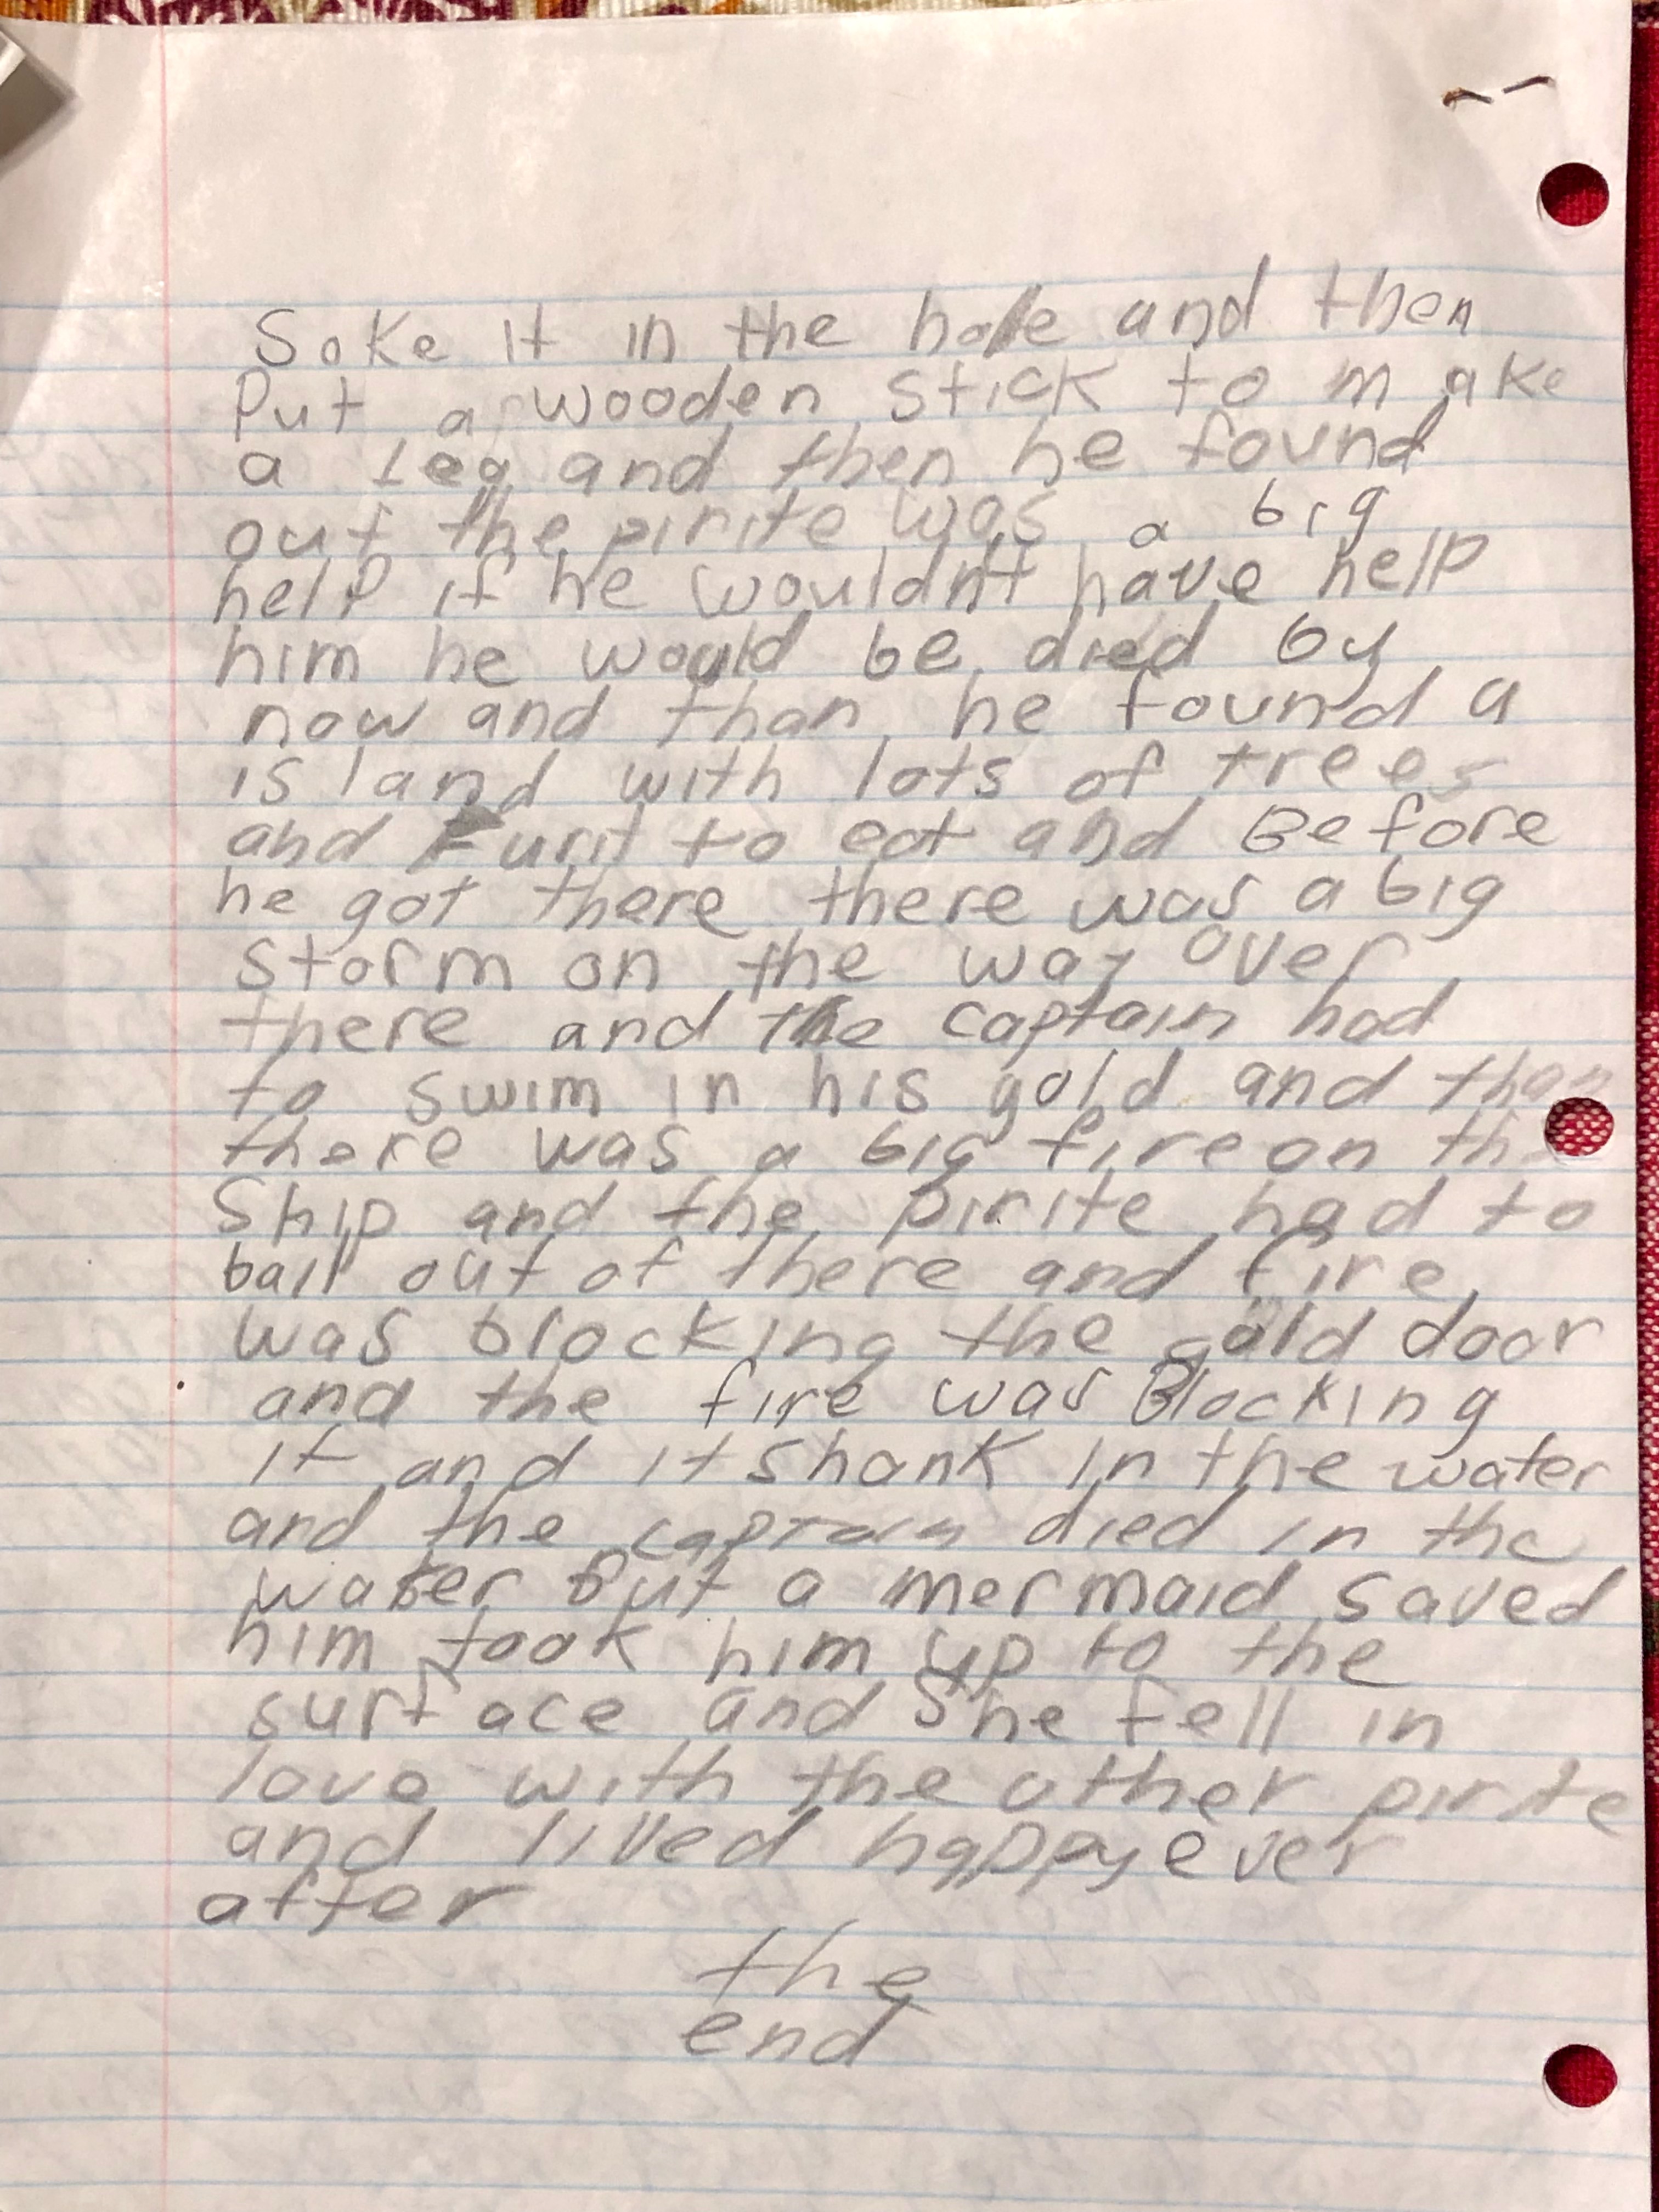 Soke it in the hole and then
Put a wooden stick to make
a leg and then he found
out the pirite was a big
help if he wouldn't have help
him he would be died by
now and than he found a
island with lots of trees
and Furit to eat and Before
he got there there was a big
storm on the way over
there and the captain had
to swim in his gold and than
there was a big fire on th
Ship and the pirite had to
bail out of there and fire
was blocking the gold door
and the fire was Blocking
it and it shank in the water
and the captain died in the
water But a mermaid saved
him took him up to the
surface and She fell in
love with the other pirite
and lived happy ever
after
the
end